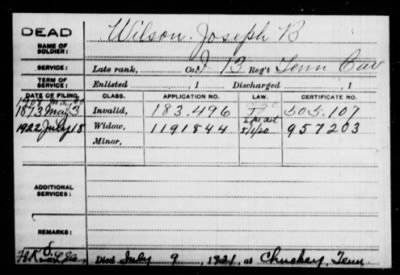 DEAD
NAME OF SOLDIER:
Wilson, Joseph B
SERVICE:
Late rank, Co. I 13 Reg't Tenn Cav
TERM OF SERVICE:
Enlisted , 1
Discharged , 1
DATE OF FILING. CLASS. APPLICATION NO. LAW. CERTIFICATE NO.
1873 May 3 Invalid, 183,496 505,107
1922 July 18 Widow, 1191844 5/1/20 957203
Minor,
ADDITIONAL SERVICES:
REMARKS:
Died July 9, 1921, at Chuckey, Tenn